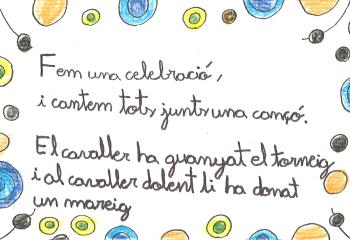 Fem una celebració,
i cantem tots junts una cançó.
El cavaller ha guanyat el torneig
i al cavaller dolent li ha donat
un mareig